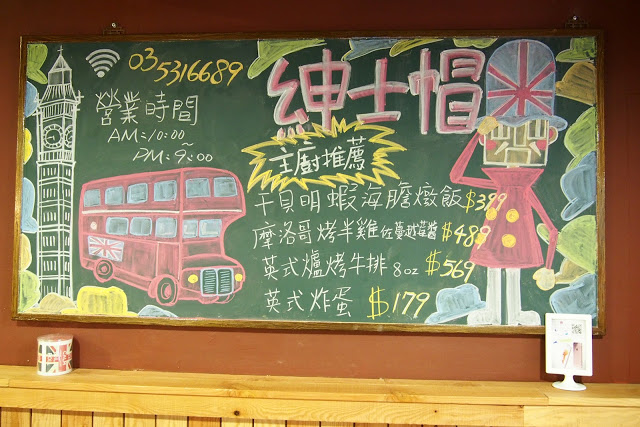 03 5316689
紳士帽
營業時間
AM:10:00
PM:9:00
主廚推薦
干貝明蝦海膽燉飯 $399
摩洛哥烤半雞佐蔓越莓醬 $489
英式爐烤牛排 8oz $569
英式炸蛋 $179